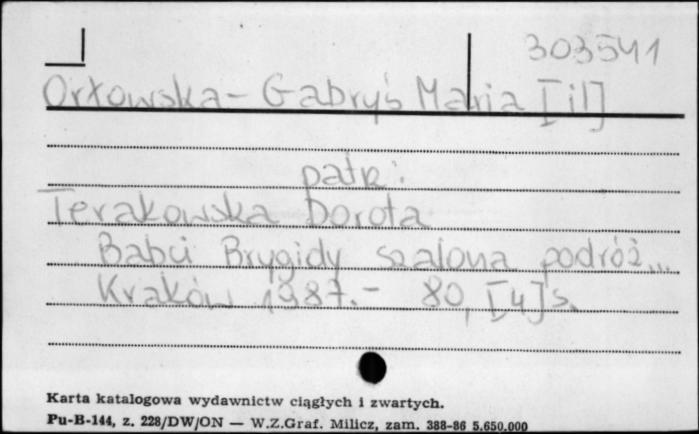 303541
Orłowska-Gabryś Maria [il]
patrz:
Terakowska Dorota
Babci Brygidy szalona podróż...
Kraków 1987.- 80, [4] s.
Karta katalogowa wydawnictw ciągłych i zwartych.
Pu-B-144, z. 228/DW/ON — W.Z.Graf. Milicz, zam. 388-86 5.650.000